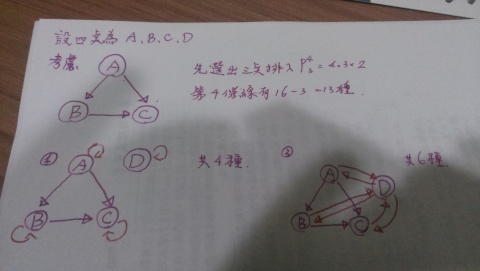 設四点為 A、B、C、D
考慮
A
先選出三点排入 P⁴₃ = 4·3×2
B
C
第4條線有 16-3=13種.
①
A
D
共4種.
B
C
②
A
D
共6種.
B
C